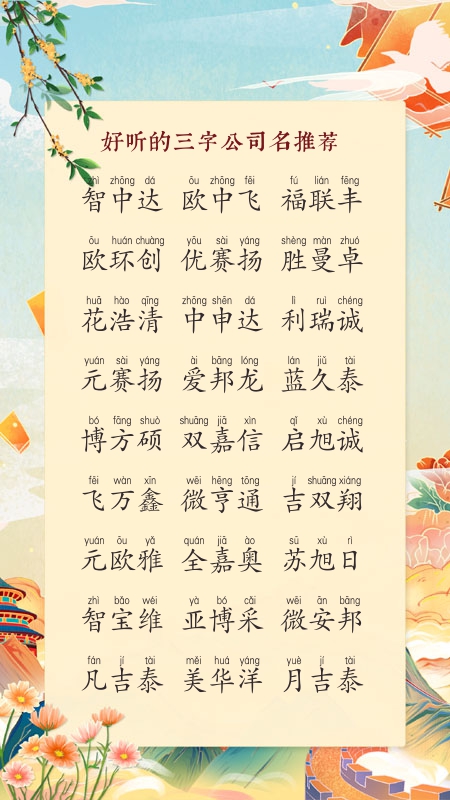 好听的三字公司名推荐
zhì zhōng dá ōu zhōng fēi fú lián fēng
智中达 欧中飞 福联丰
ōu huán chuàng yōu sài yáng shèng màn zhuó
欧环创 优赛扬 胜曼卓
huā hào qīng zhōng shēn dá lì ruì chéng
花浩清 中申达 利瑞诚
yuán sài yáng ài bāng lóng lán jiǔ tài
元赛扬 爱邦龙 蓝久泰
bó fāng shuò shuāng jiā xìn qǐ xù chéng
博方硕 双嘉信 启旭诚
fēi wàn xīn wēi hēng tōng jí shuāng xiáng
飞万鑫 微亨通 吉双翔
yuán ōu yǎ quán jiā ào sū xù rì
元欧雅 全嘉奥 苏旭日
zhì bǎo wéi yà bó cǎi wēi ān bāng
智宝维 亚博采 微安邦
fán jí tài měi huá yáng yuè jí tài
凡吉泰 美华洋 月吉泰